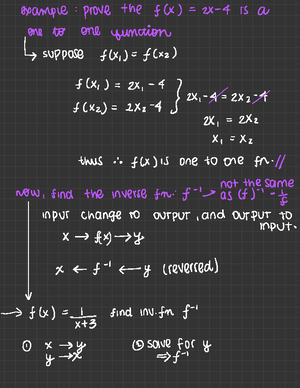 example : prove the f(x) = 2x-4 is a
one to one function
↳ suppose f(x₁) = f(x₂)
f(x₁) = 2x₁ - 4
f(x₂) = 2x₂ - 4 } 2x₁ - 4 = 2x₂ - 4
2x₁ = 2x₂
x₁ = x₂
thus ∴ f(x) is one to one fn. //
now, find the inverse fn: f⁻¹ → not the same as (f)⁻¹ = 1/f
input change to output, and output to
input.
x → f(x) → y
x ← f⁻¹ ← y (reversed)
→ f(x) = 1/(x+3) find inv. fn f⁻¹
① x → y
y → x
② solve for y
⇒ f⁻¹